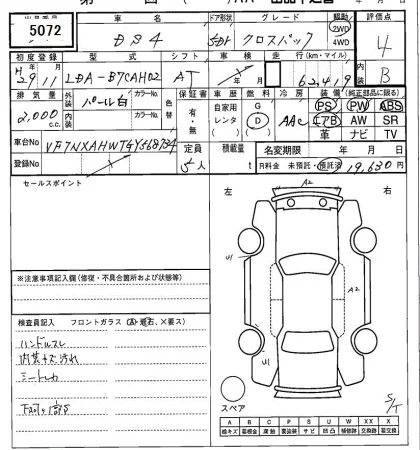 5072
車名
ドア形状
グレード
駆動
評価点
DS4
5Dr
クロスバック
2WD
4WD
4
初度登録
型式
シフト
車検
走行(km・マイル)
内装
H29.11
LDA-B7CAH02
AT
62,419
B
排気量
外装
カラーNo.
内装
カラーNo.
色替
保証書
車歴
燃料
冷房
装備(純正部品に限る)
2,000
c.c.
パール白
有・無
自家用
レンタ
G
D
AAC
PS PW ABS
エアB AW SR
革 ナビ TV
車台No
VF7NXAHWTGY568734
定員
積載量
名変期限
年 月 日
登録No
5人
t
R料金 未預託・預託済
19,630円
セールスポイント
左
A2
右
U1
A2
※注意事項記入欄(修復・不具合箇所および状態等)
検査員記入
フロントガラス(A・退石、×要ス)
ハンドルスレ
内装キズ汚れ
U1
スペア
S/T
A B C P S U W XX X
線キズ 着損金 腐蝕 要塗装 サビ 凹凸 補修跡 交換跡 要交換